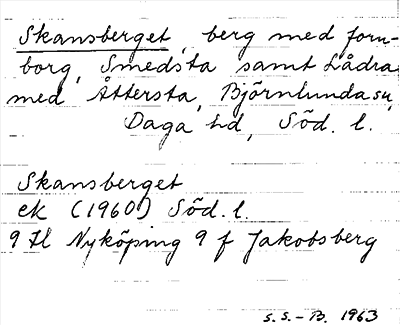 Skansberget, berg med forn-
borg, Smedsta samt Lådra
med Åttersta, Björnlunda sn,
Daga hd, Söd. l.
Skansberget
ek (1960) Söd. l.
9 H Nyköping 9 f Jakobsberg
S.S.-B. 1963